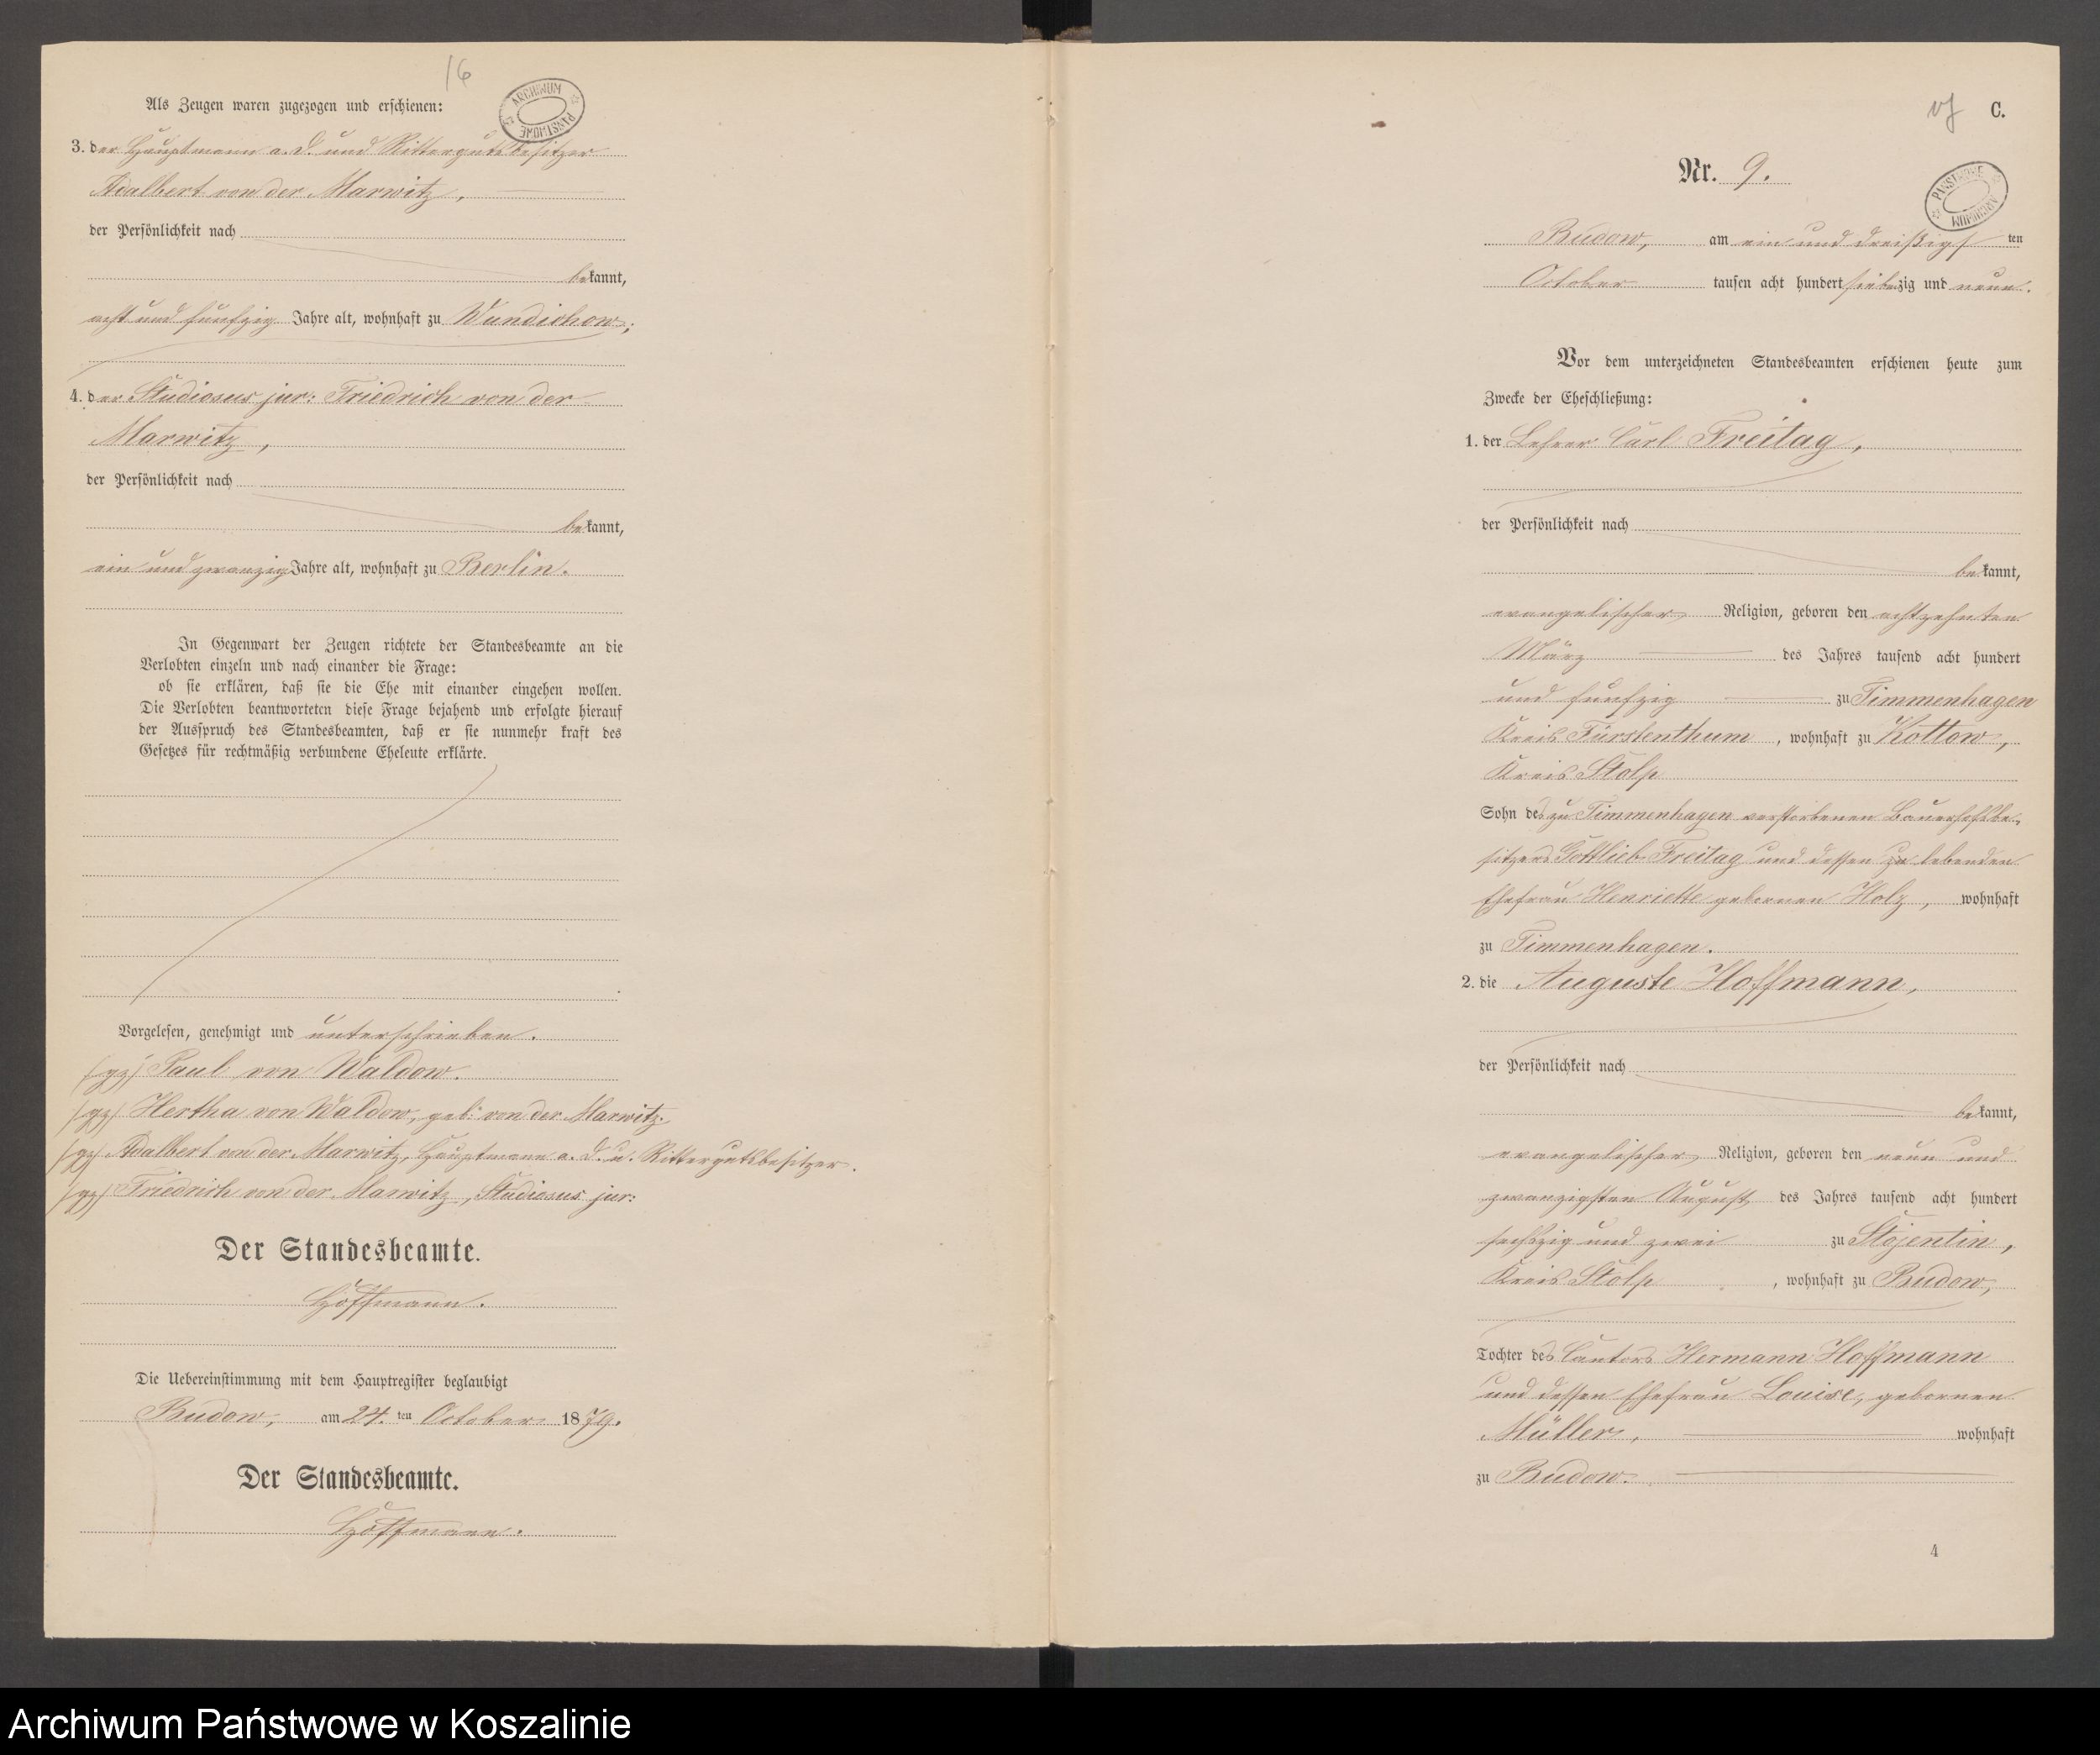 16
Als Zeugen waren zugezogen und erschienen:
ARCHIWUM PAŃSTWOWE
3. der Hauptmann a. D. und Rittergutsbesitzer
Adalbert von der Marwitz,
der Persönlichkeit nach
bekannt,
acht und fünfzig Jahre alt, wohnhaft zu Wundichow;
4. der Studiosus jur: Friedrich von der
Marwitz,
der Persönlichkeit nach
bekannt,
ein und zwanzig Jahre alt, wohnhaft zu Berlin.
In Gegenwart der Zeugen richtete der Standesbeamte an die
Verlobten einzeln und nach einander die Frage:
ob sie erklären, daß sie die Ehe mit einander eingehen wollen.
Die Verlobten beantworteten diese Frage bejahend und erfolgte hierauf
der Ausspruch des Standesbeamten, daß er sie nunmehr kraft des
Gesetzes für rechtmäßig verbundene Eheleute erklärte.
Vorgelesen, genehmigt und unterschrieben.
(gz) Paul von Waldow.
(gz) Hertha von Waldow, geb: von der Marwitz.
(gz) Adalbert von der Marwitz, Hauptmann a. D. u. Rittergutsbesitzer.
(gz) Friedrich von der Marwitz, Studiosus jur:
Der Standesbeamte.
Hoffmann.
Die Uebereinstimmung mit dem Hauptregister beglaubigt
Budow, am 24. ten October 1879.
Der Standesbeamte.
Hoffmann.
C.
Nr. 9.
ARCHIWUM PAŃSTWOWE
Budow, am ein und dreißigs ten
October tausen acht hundert siebenzig und neun.
Vor dem unterzeichneten Standesbeamten erschienen heute zum
Zwecke der Eheschließung:
1. der Lehrer Carl Freitag,
der Persönlichkeit nach
bekannt,
evangelischer Religion, geboren den achtzehnten
März des Jahres tausend acht hundert
und fünfzig zu Timmenhagen
Kreis Fürstenthum, wohnhaft zu Kottow,
Kreis Stolp
Sohn des zu Timmenhagen verstorbenen Bauerhofsbe-
sitzers Gottlieb Freitag und dessen zu lebenden
Ehefrau Henriette gebornen Holz, wohnhaft
zu Timmenhagen.
2. die Auguste Hoffmann,
der Persönlichkeit nach
bekannt,
evangelischer Religion, geboren den neun und
zwanzigsten August des Jahres tausend acht hundert
sechszig und zwei zu Stojentin,
Kreis Stolp, wohnhaft zu Budow,
Tochter des Cantors Hermann Hoffmann
und dessen Ehefrau Louise, gebornen
Müller, wohnhaft
zu Budow.
4
Archiwum Państwowe w Koszalinie